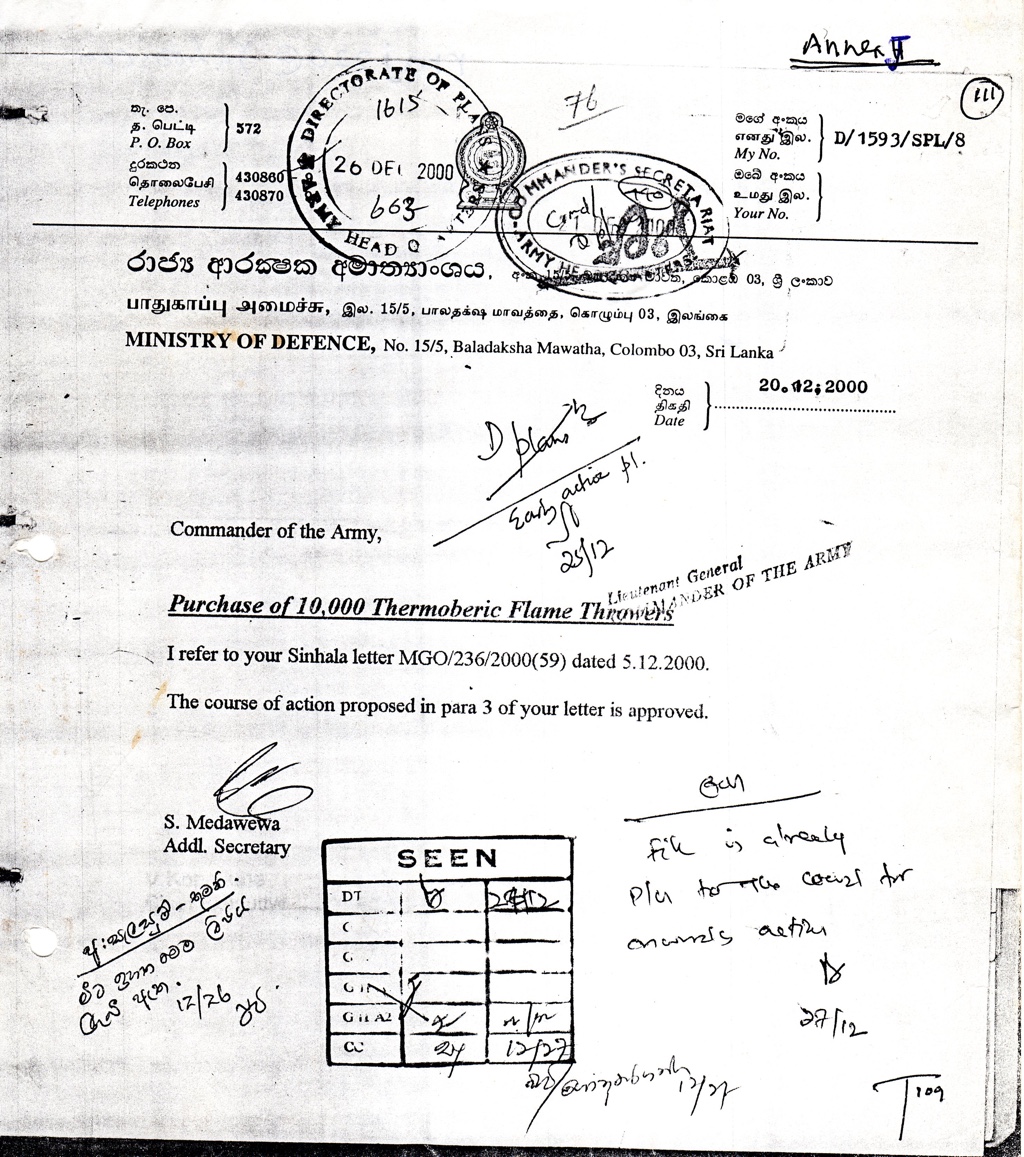 Annex
111
76
DIRECTORATE OF PLA
1615
26 DEC 2000
663
ARMY HEAD Q
COMMANDER'S SECRETARIAT
තැ. පෙ.
த. பெட்டி
P. O. Box
572
දුරකථන
தொலைபேசி
Telephones
430860
430870
මගේ අංකය
எனது இல.
My No.
D/1593/SPL/8
ඔබේ අංකය
உமது இல.
Your No.
රාජ්‍ය ආරක්ෂක අමාත්‍යාංශය, කොළඹ 03, ශ්‍රී ලංකාව
பாதுகாப்பு அமைச்சு, இல. 15/5, பாலதக்ஷ மாவத்தை, கொழும்பு 03, இலங்கை
MINISTRY OF DEFENCE, No. 15/5, Baladaksha Mawatha, Colombo 03, Sri Lanka
දිනය
திகதி
Date
20.12.2000
D plans
Early action pl.
25/12
Commander of the Army,
Lieutenant General
COMMANDER OF THE ARMY
Purchase of 10,000 Thermoberic Flame Throwers
I refer to your Sinhala letter MGO/236/2000(59) dated 5.12.2000.
The course of action proposed in para 3 of your letter is approved.
S. Medawewa
Addl. Secretary
SEEN
DT
G II A2
CC 12/27
file is already
27/12
12/26
12/27
T109